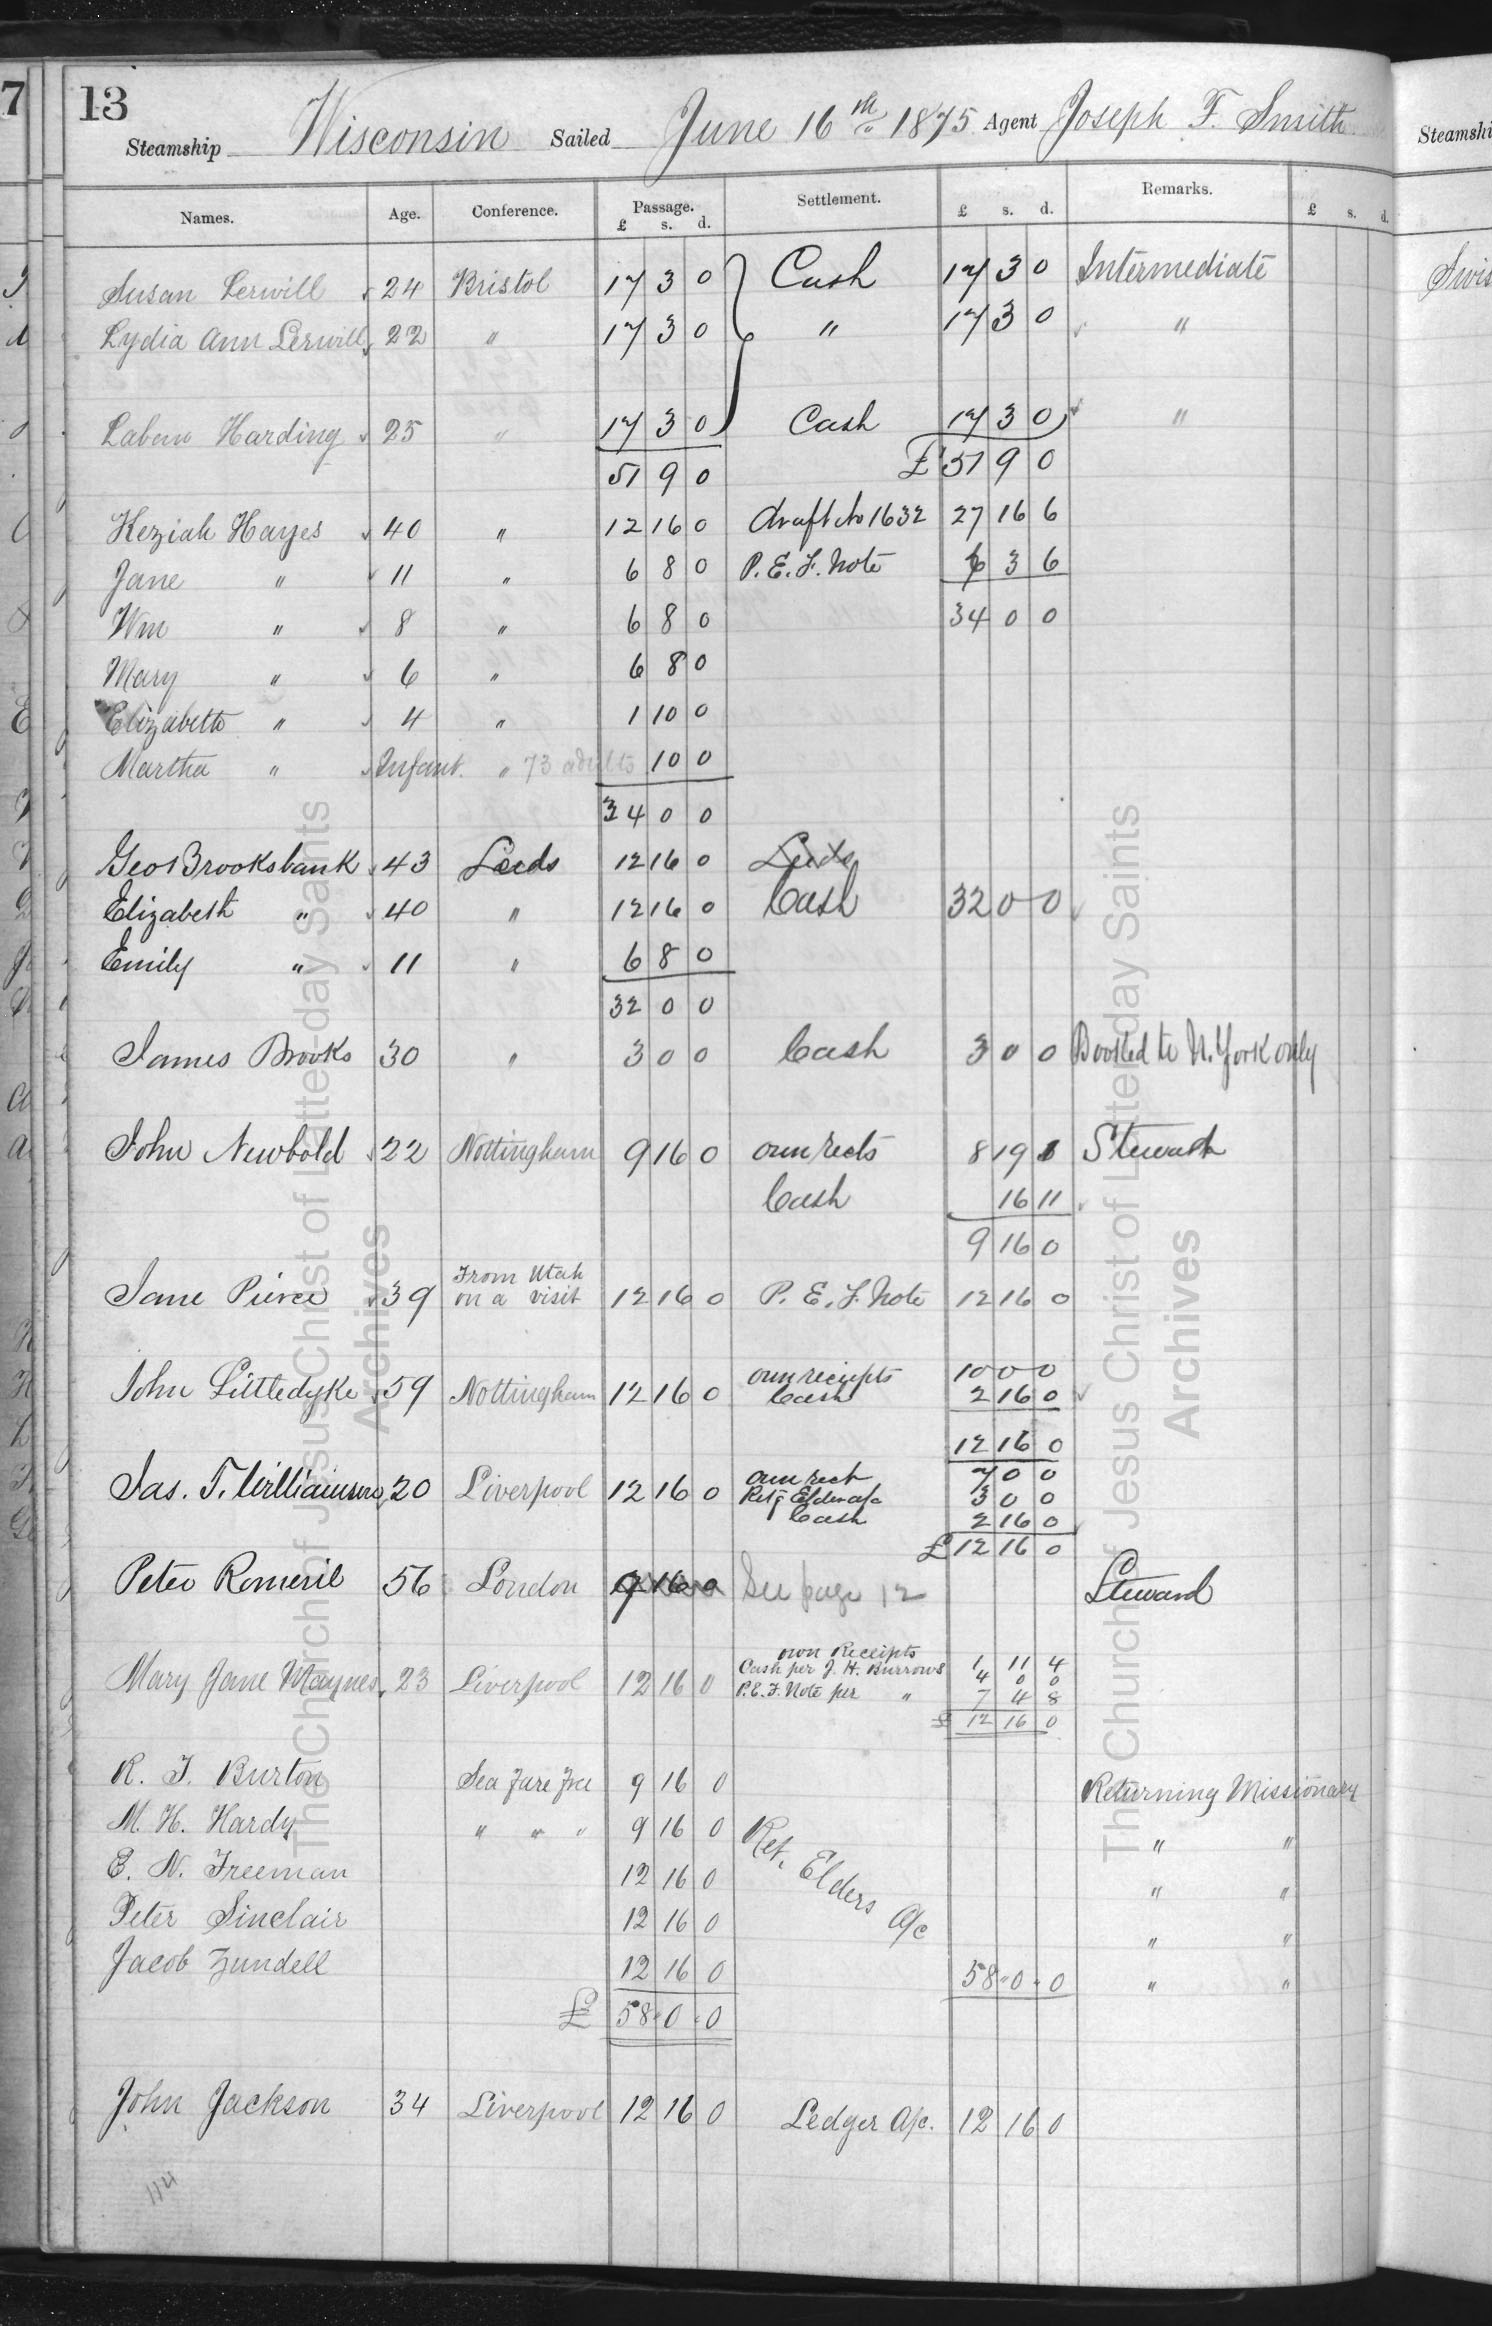 13
Steamship Wisconsin Sailed June 16th 1875 Agent Joseph F. Smith
Names. Age. Conference. Passage. £ s. d. Settlement. £ s. d. Remarks. £ s. d.
Susan Lerwill 24 Bristol 17 3 0 Cash 17 3 0 Intermediate
Lydia Ann Lerwill 22 " 17 3 0 " 17 3 0 "
Labern Harding 25 " 17 3 0 Cash 17 3 0 "
51 9 0 £ 51 9 0
Keziah Hayes 40 " 12 16 0 draft No 1632 27 16 6
Jane " 11 " 6 8 0 P. E. F. Note 6 3 6
Wm " 8 " 6 8 0 34 0 0
Mary " 6 " 6 8 0
Elizabeth " 4 " 1 10 0
Martha " Infant. " 73 adults 10 0
34 0 0
Geo Brooksbank 43 Leeds 12 16 0 Leeds
Elizabeth " 40 " 12 16 0 Cash 32 0 0
Emily " 11 " 6 8 0
32 0 0
James Brooks 30 " 3 0 0 Cash 3 0 0 Booked to N. York only
John Newbold 22 Nottingham 9 16 0 own rects 8 19 1 Steward
Cash 16 11
9 16 0
Jane Pierce 39 From Utah on a visit 12 16 0 P. E. F. Note 12 16 0
John Littledyke 59 Nottingham 12 16 0 own receipts 10 0 0
Cash 2 16 0
12 16 0
Jas. T. Williamson 20 Liverpool 12 16 0 own rect 7 0 0
Retg Elder a/c 3 0 0
Cash 2 16 0
£ 12 16 0
Peter Romeril 56 London 9 16 0 See page 12 Steward
own Receipts 1 11 4
Mary Jane Maynes 23 Liverpool 12 16 0 Cash per J. H. Burrows 4 0 0
P.E.F. Note per " 7 4 8
£ 12 16 0
R. T. Burton Sea Fare Free 9 16 0 Returning Missionary
M. H. Hardy " " " 9 16 0 Ret. Elders a/c " "
E. N. Freeman 12 16 0 " "
Peter Sinclair 12 16 0 " "
Jacob Zundell 12 16 0 58 " 0 " 0 " "
£ 58 " 0 " 0
John Jackson 34 Liverpool 12 16 0 Ledger A/c. 12 16 0
114
The Church of Jesus Christ of Latter-day Saints
Archives
The Church of Jesus Christ of Latter-day Saints
Archives
7
Steamshi
Swis